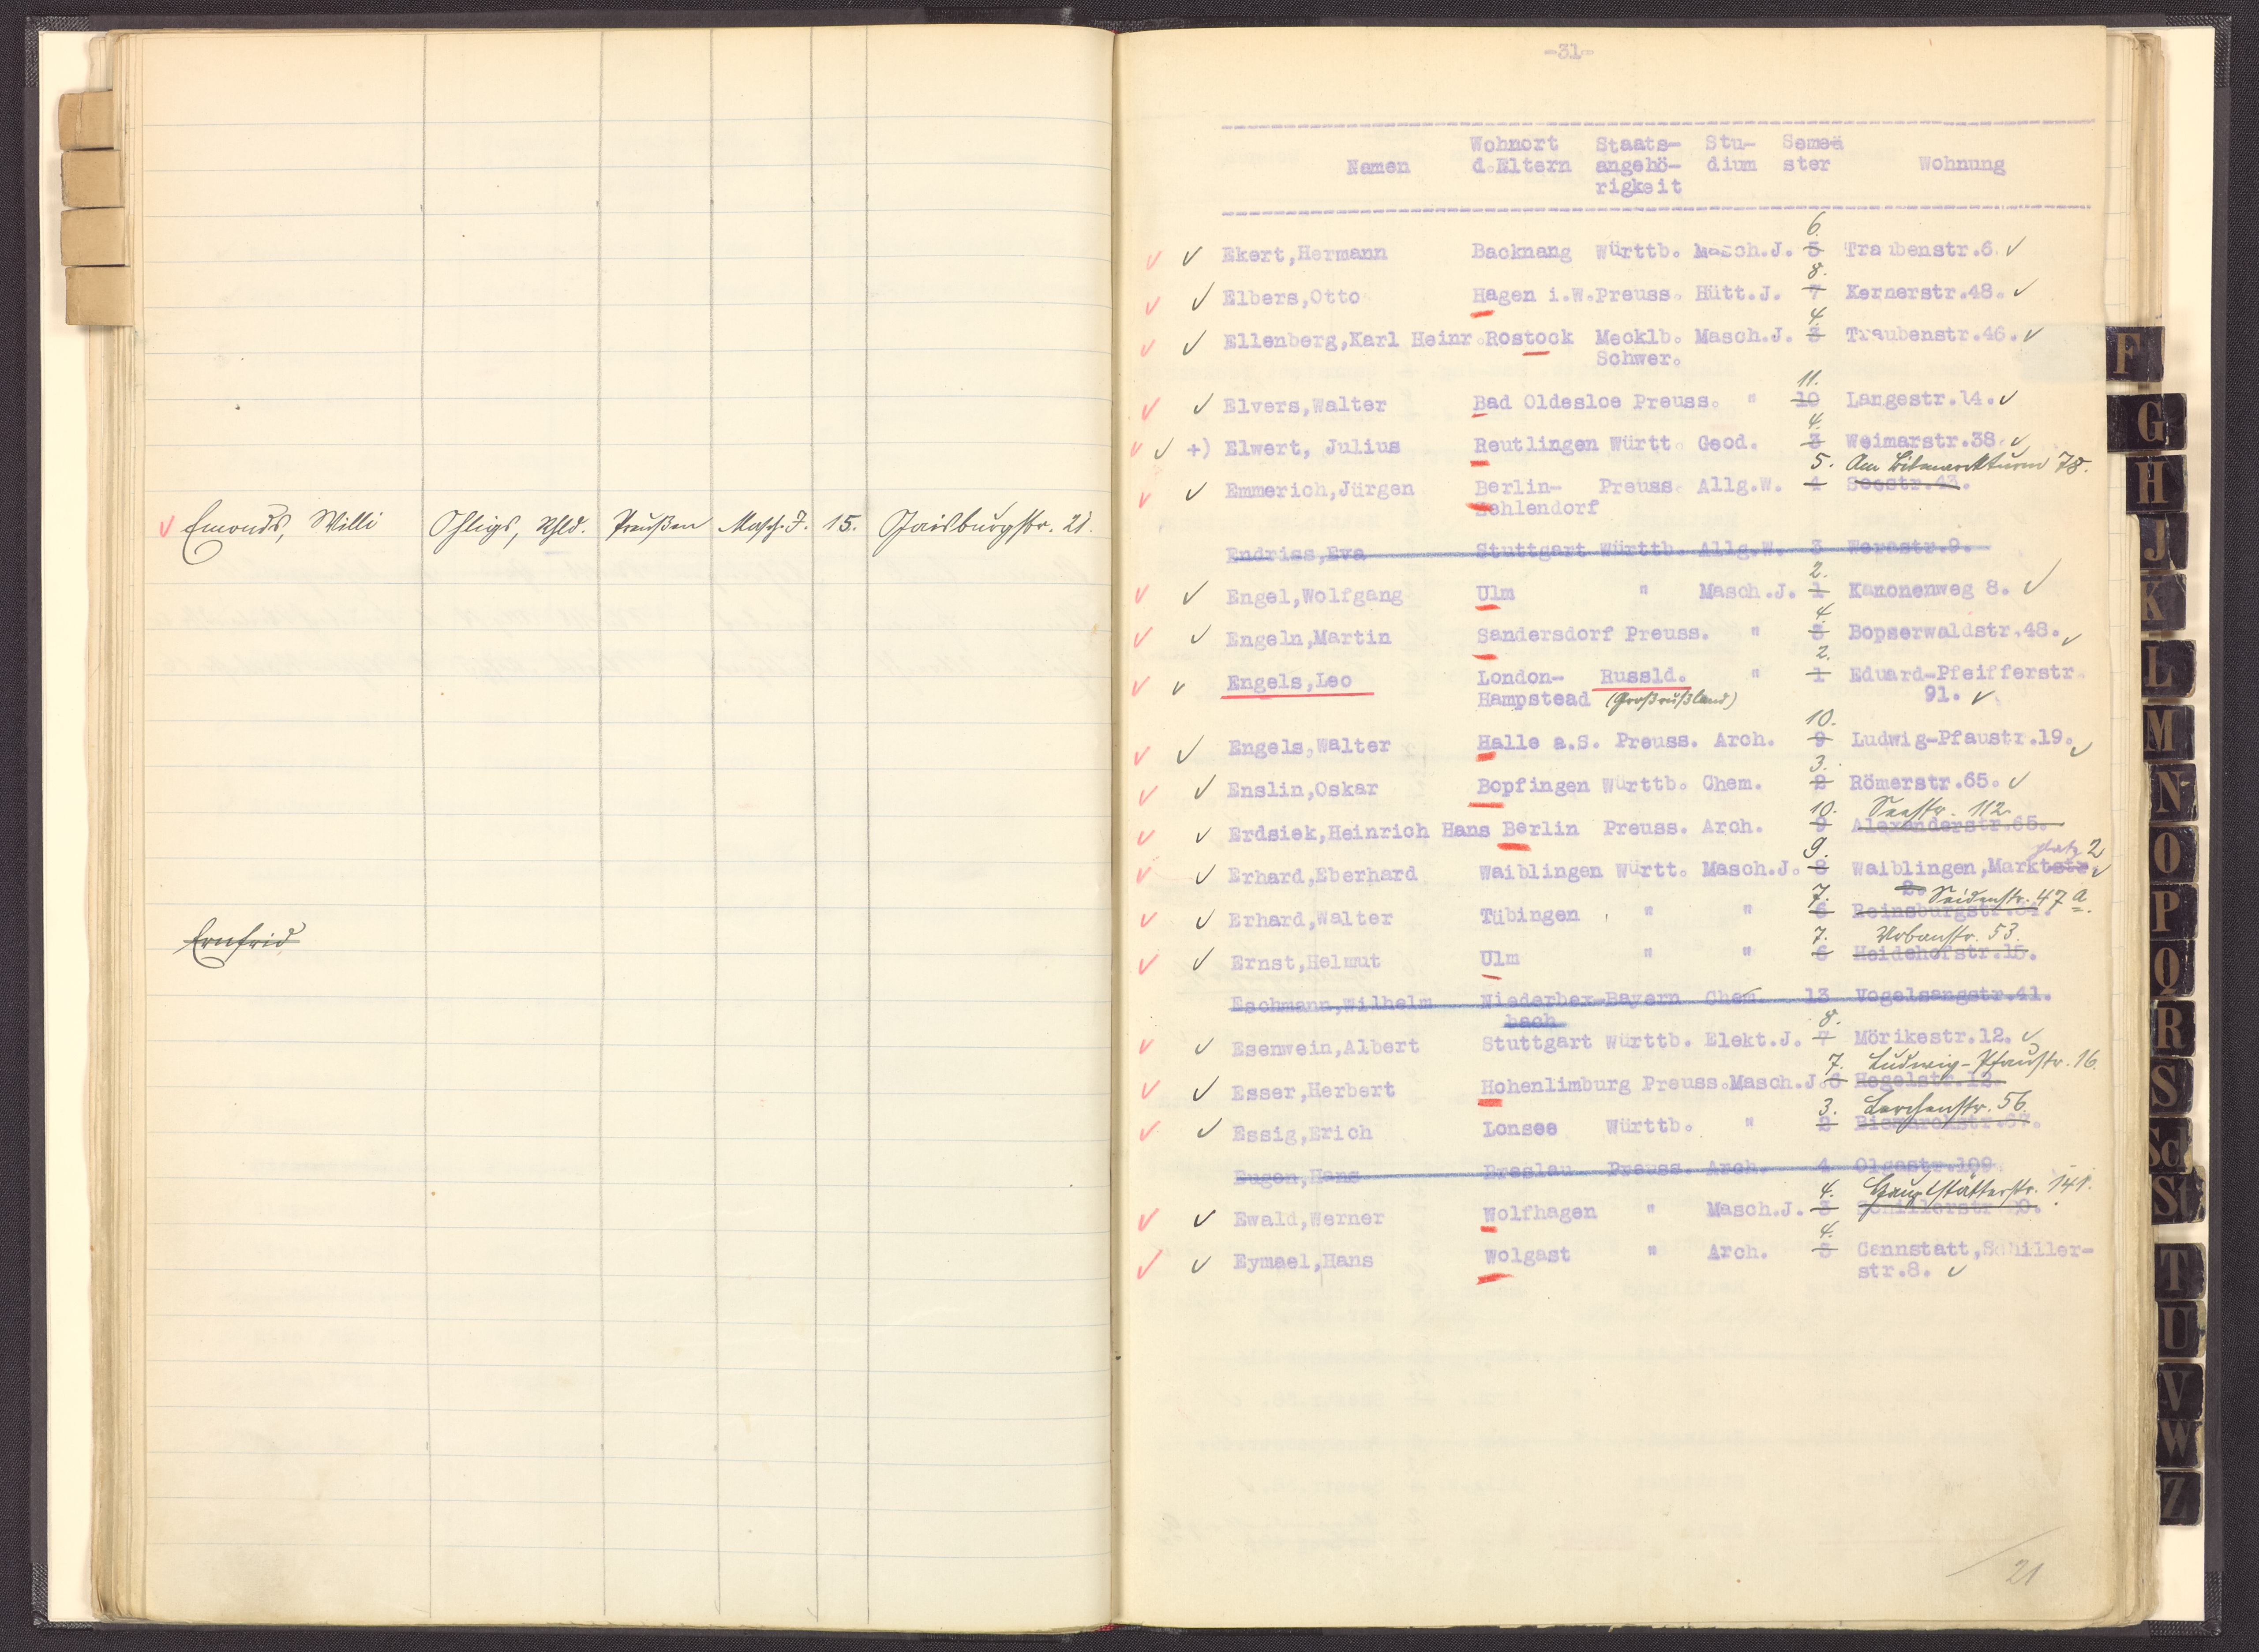 Emonds, Willi Ohligs, Rhld. Preußen Masch. J. 15. Gaisburgstr. 21.
Ernfrid
-31-
Wohnort Staats- Stu- Semeä
Namen d.Eltern angehö- dium ster Wohnung
rigkeit
6.
Ekert,Hermann Backnang Württb. Masch.J. 5 Traubenstr.6.
8.
Elbers,Otto Hagen i.W.Preuss. Hütt.J. 7 Kernerstr.48.
4.
Ellenberg,Karl Heinr.Rostock Mecklb. Masch.J. 3 Traubenstr.46.
Schwer.
11.
Elvers,Walter Bad Oldesloe Preuss. " 10 Langestr.14.
4.
+) Elwert, Julius Reutlingen Württ. Geod. 3 Weimarstr.38.
5. Am Bismarckturm 78.
Emmerich,Jürgen Berlin- Preuss. Allg.W. 4 Seestr.43.
Zehlendorf
Endriss,Eva Stuttgart Württb. Allg.W. 3 Werastr.9.
2.
Engel,Wolfgang Ulm " Masch.J. 1 Kanonenweg 8.
4.
Engeln,Martin Sandersdorf Preuss. " 3 Bopserwaldstr.48.
2.
Engels,Leo London- Russld. " 1 Eduard-Pfeifferstr.
Hampstead (Großrußland) 91.
10.
Engels,Walter Halle a.S. Preuss. Arch. 9 Ludwig-Pfaustr.19.
3.
Enslin,Oskar Bopfingen Württb. Chem. 2 Römerstr.65.
10. Seestr. 112.
Erdsiek,Heinrich Hans Berlin Preuss. Arch. 9 Alexanderstr.65.
9. platz 2
Erhard,Eberhard Waiblingen Württ. Masch.J. 8 Waiblingen,Marktstr
2.
7. Seidenstr. 47 a.
Erhard,Walter Tübingen " " 6 Reinsburgstr.
7. Urbanstr. 53.
Ernst,Helmut Ulm " " 6 Heidehofstr.15.
Eschmann,Wilhelm Niederbex-Bayern Chem. 13 Vogelsangstr.41.
bach
8.
Esenwein,Albert Stuttgart Württb. Elekt.J. 7 Mörikestr.12.
7. Ludwig-Pfaustr. 16.
Esser,Herbert Hohenlimburg Preuss.Masch.J.6 Hegelstr.12.
3. Lerchenstr. 56.
Essig,Erich Lonsee Württb. " 2 Bismarckstr.67.
Eugen,Hans Breslau Preuss. Arch. 4 Olgastr.109.
4. Hauptstätterstr. 141.
Ewald,Werner Wolfhagen " Masch.J. 3 Schillerstr
4.
Eymael,Hans Wolgast " Arch. 3 Cannstatt,Schiller-
str.8.
21
F
G
H
J
K
L
M
N
O
P
Q
R
S
Sch
St
T
U
V
W
Z